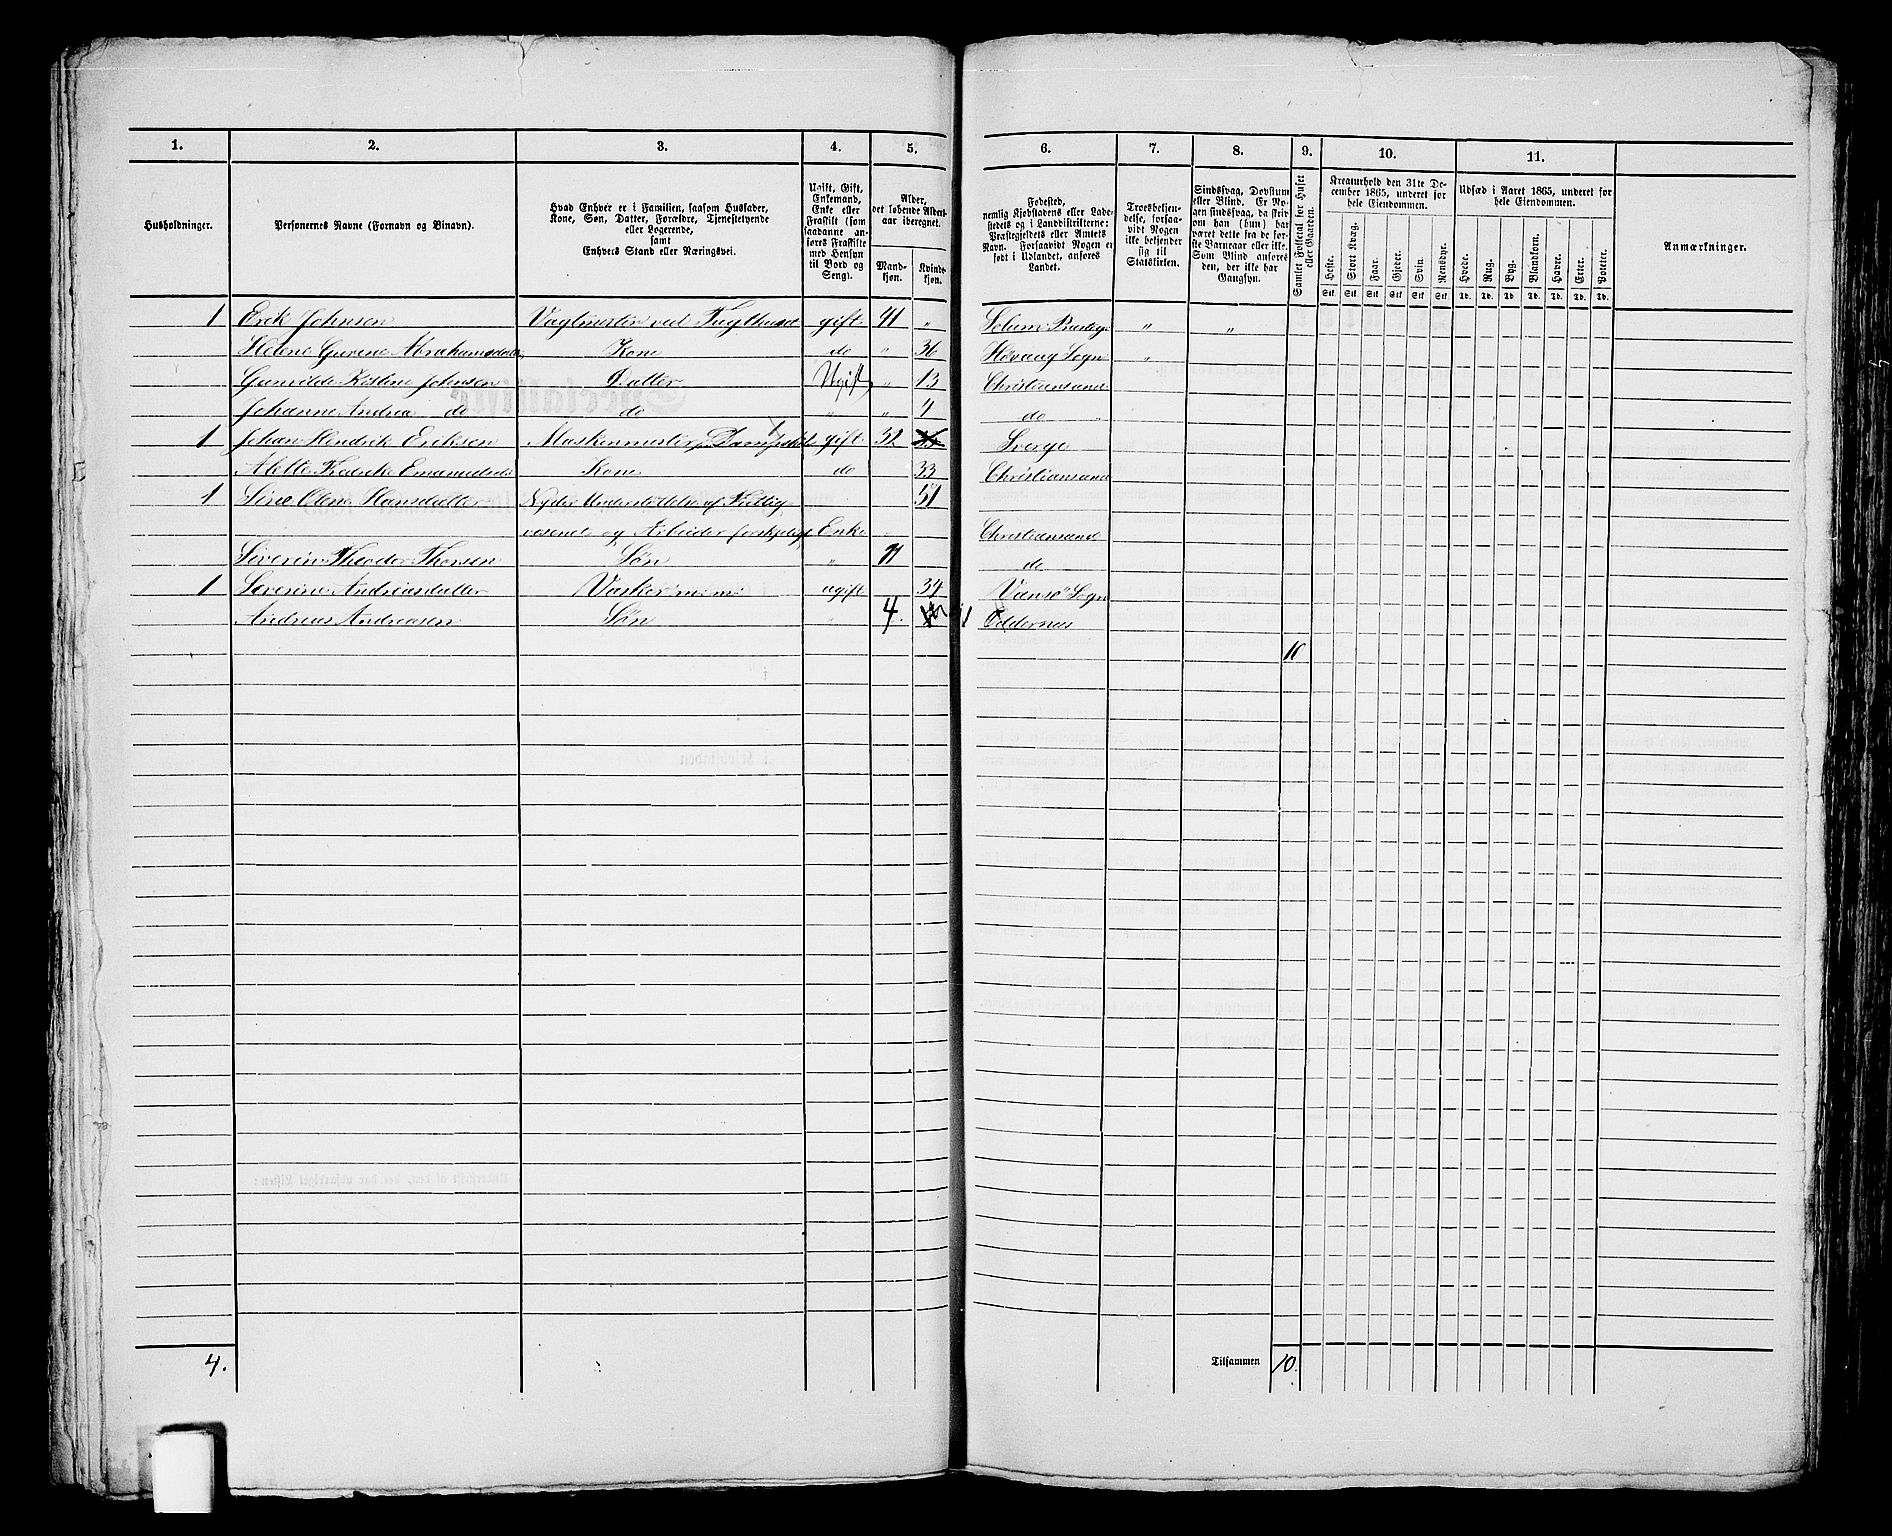 1. 2. 3. 4. 5. 6. 7. 8. 9. 10. 11.
Husholdninger.
Personernes Navne (Fornavn og Binavn).
Hvad Enhver er i Familien, saasom Husfader,
Kone, Søn, Datter, Forældre, Tjenestetyende
eller Logerende,
samt
Enhvers Stand eller Næringsvei.
Ugift, Gift,
Enkemand,
Enke eller
Fraskilt (som
saadanne an-
føres Fraskilte
med Hensyn
til Bord og
Seng).
Alder,
det løbende Alders-
aar iberegnet.
Mand-
kjøn.
Kvinde-
kjøn.
Fødested,
nemlig Kjøbstadens eller Lade-
stedets og i Landdistrikterne:
Præstegjeldets eller Amtets
Navn. Forsaavidt Nogen er
født i Udlandet, anføres
Landet.
Troesbekjen-
delse, forsaa-
vidt Nogen
ikke bekjender
sig til
Statskirken.
Sindssvag, Døvstum
eller Blind. Er No-
gen sindssvag, da skriv
om han (hun) har
været dette fra de før-
ste Barneaar eller ikke.
Som Blind anføres
den, der ikke har
Gangsyn.
Samlet Folketal for Huset
eller Gaarden.
Kreaturhold den 31te De-
cember 1865, underet for
hele Eiendommen.
Heste. Stort Kvæg. Faar. Gjeder. Svin. Rensdyr.
Stk. Stk. Stk. Stk. Stk. Stk.
Udsæd i Aaret 1865, underet for
hele Eiendommen.
Hvede. Rug. Byg. Blandkorn. Havre. Erter. Poteter.
Td. Td. Td. Td. Td. Td. Td.
Anmærkninger.
1 Erik Johnsen Vagtmester ved Tugthuset gift 41 " Solum Præstegj " "
Helene Gurine Abrahamsdatter Kone do " 36 Høvaag Sogn "
Gunilde Kistine Johnsen Datter Ugift " 13 Christiansand
Johanne Andrea do do " " 4 do "
1 Johan Hendrik Eriksen Maskenmester gift 32 Sverge
Alette Fredrike Emanuelsd Kone do 33 Christiansand
1 Sine Olene Hansdatter Nyder Understøttelse af Fattig 51
vesenet og Arbeider forskjeligt Enke Christiansand
Siverin Theodor Thorsen Søn " 11 do
1 Severine Andreasdatter Vasker m:m: ugift 34 Vansø Sogn
Andreas Andreasen Søn " 4. Oddernes
10
4. Tilsammen 10.